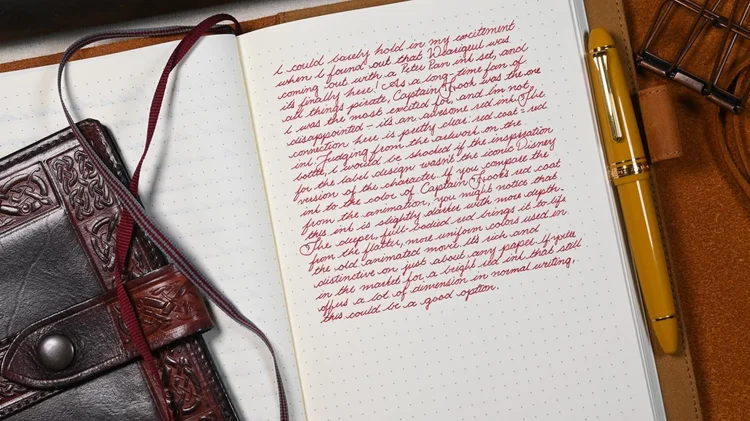 I could barely hold in my excitement
when I found out that Wearingeul was
coming out with a Peter Pan ink set, and
it's finally here! As a long-time fan of
all things pirate, Captain Hook was the one
I was the most excited for, and I'm not
disappointed - it's an awesome red ink. The
connection here is pretty clear: red coat = red
ink. Judging from the artwork on the
bottle, I would be shocked if the inspiration
for the label design wasn't the iconic Disney
version of the character. If you compare the
ink to the color of Captain Hook's red coat
from the animation, you might notice that
this ink is slightly darker with more depth.
The deeper, full-bodied red brings it to life
from the flatter, more uniform colors used in
the old animated movie. It's rich and
distinctive on just about any paper. If you're
in the market for a bright red ink that still
offers a lot of dimension in normal writing,
this could be a good option.